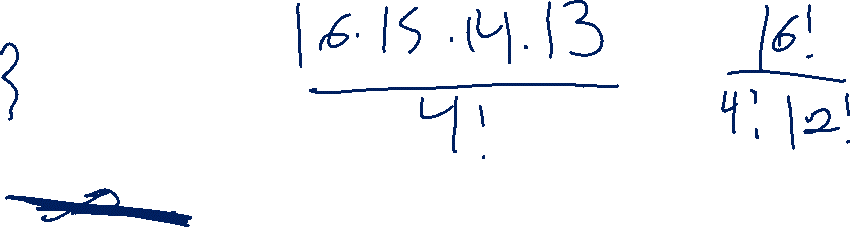 }
16·15·14·13 / 4!
16! / 4! 12!